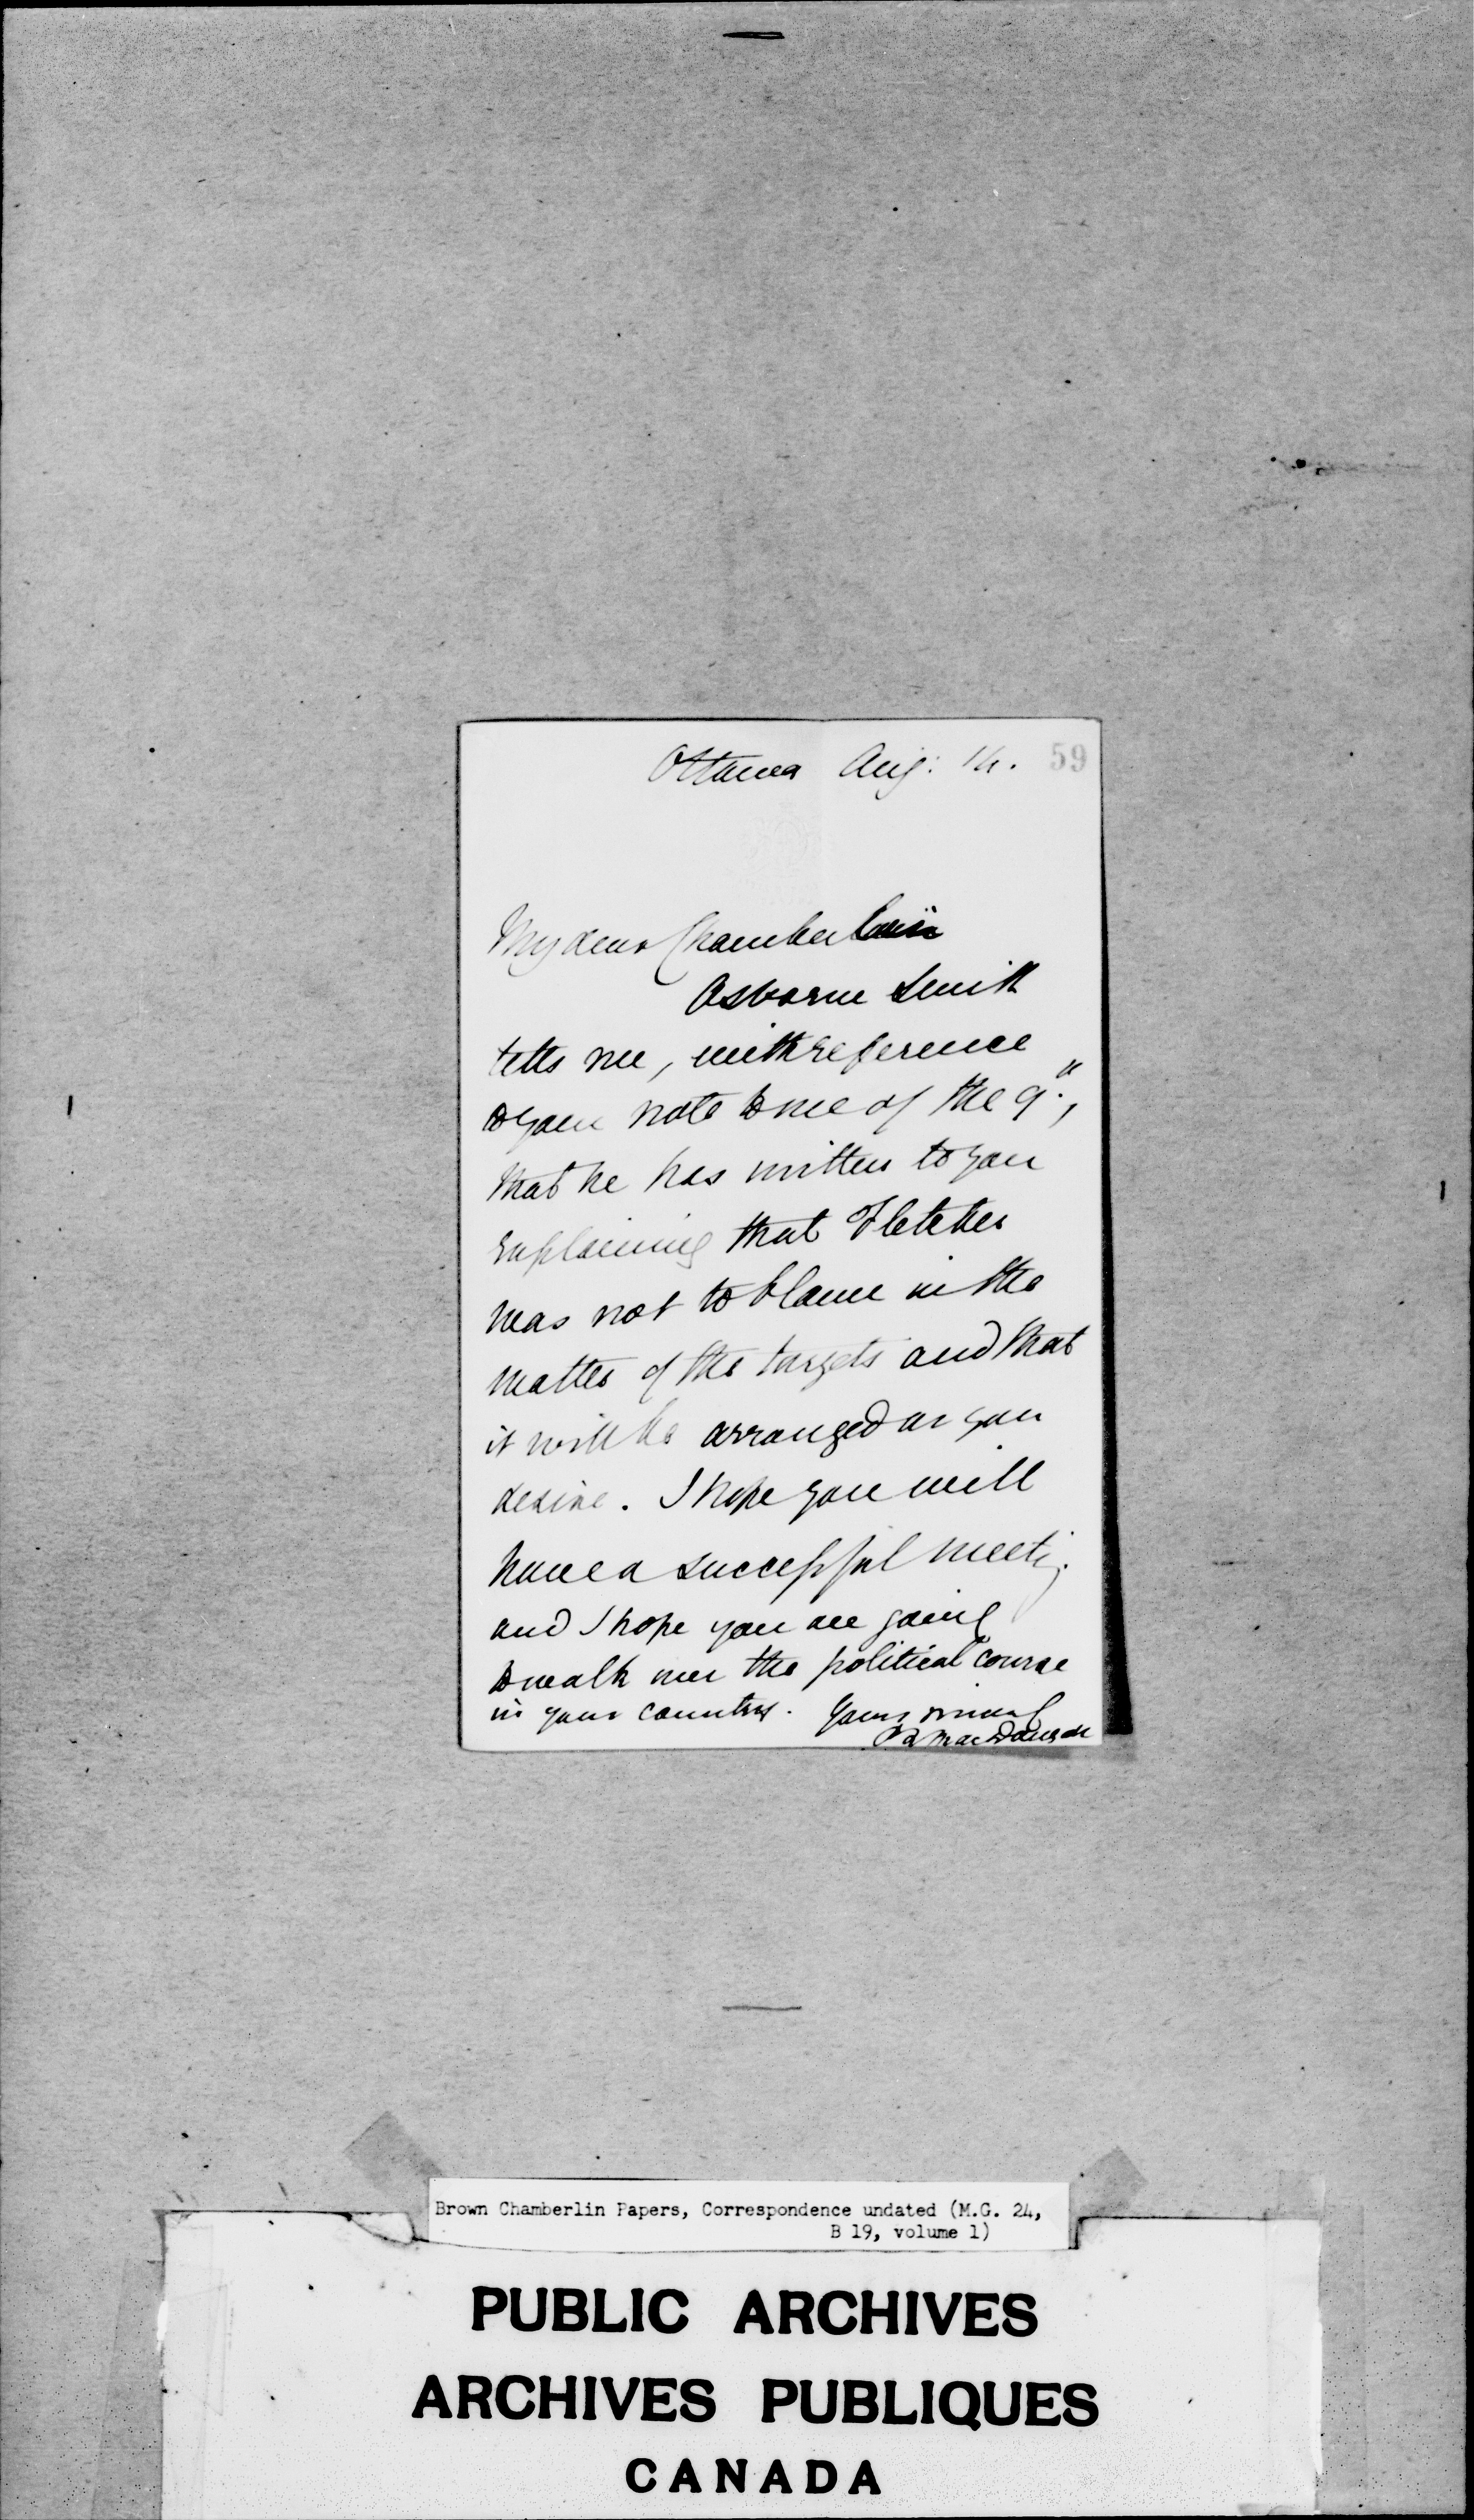 Ottawa Aug: 14. 59
My dear Chamberlain
Osborne Smith
tells me, with reference
to your note to me of the 9",
that he has written to you
explaining that Fletcher
was not to blame in the
matter of the targets and that
it will be arranged as you
desire. I hope you will
have a successful meetg.
and I hope you are going
to walk over the political course
in your country. Yours
MacDougall
Brown Chamberlin Papers, Correspondence undated (M.G. 24,
B 19, volume 1)
PUBLIC ARCHIVES
ARCHIVES PUBLIQUES
CANADA